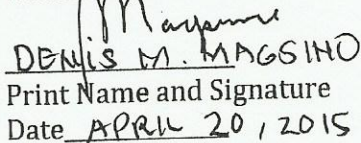 Magsino
DENNIS M. MAGSINO
Print Name and Signature
Date APRIL 20, 2015